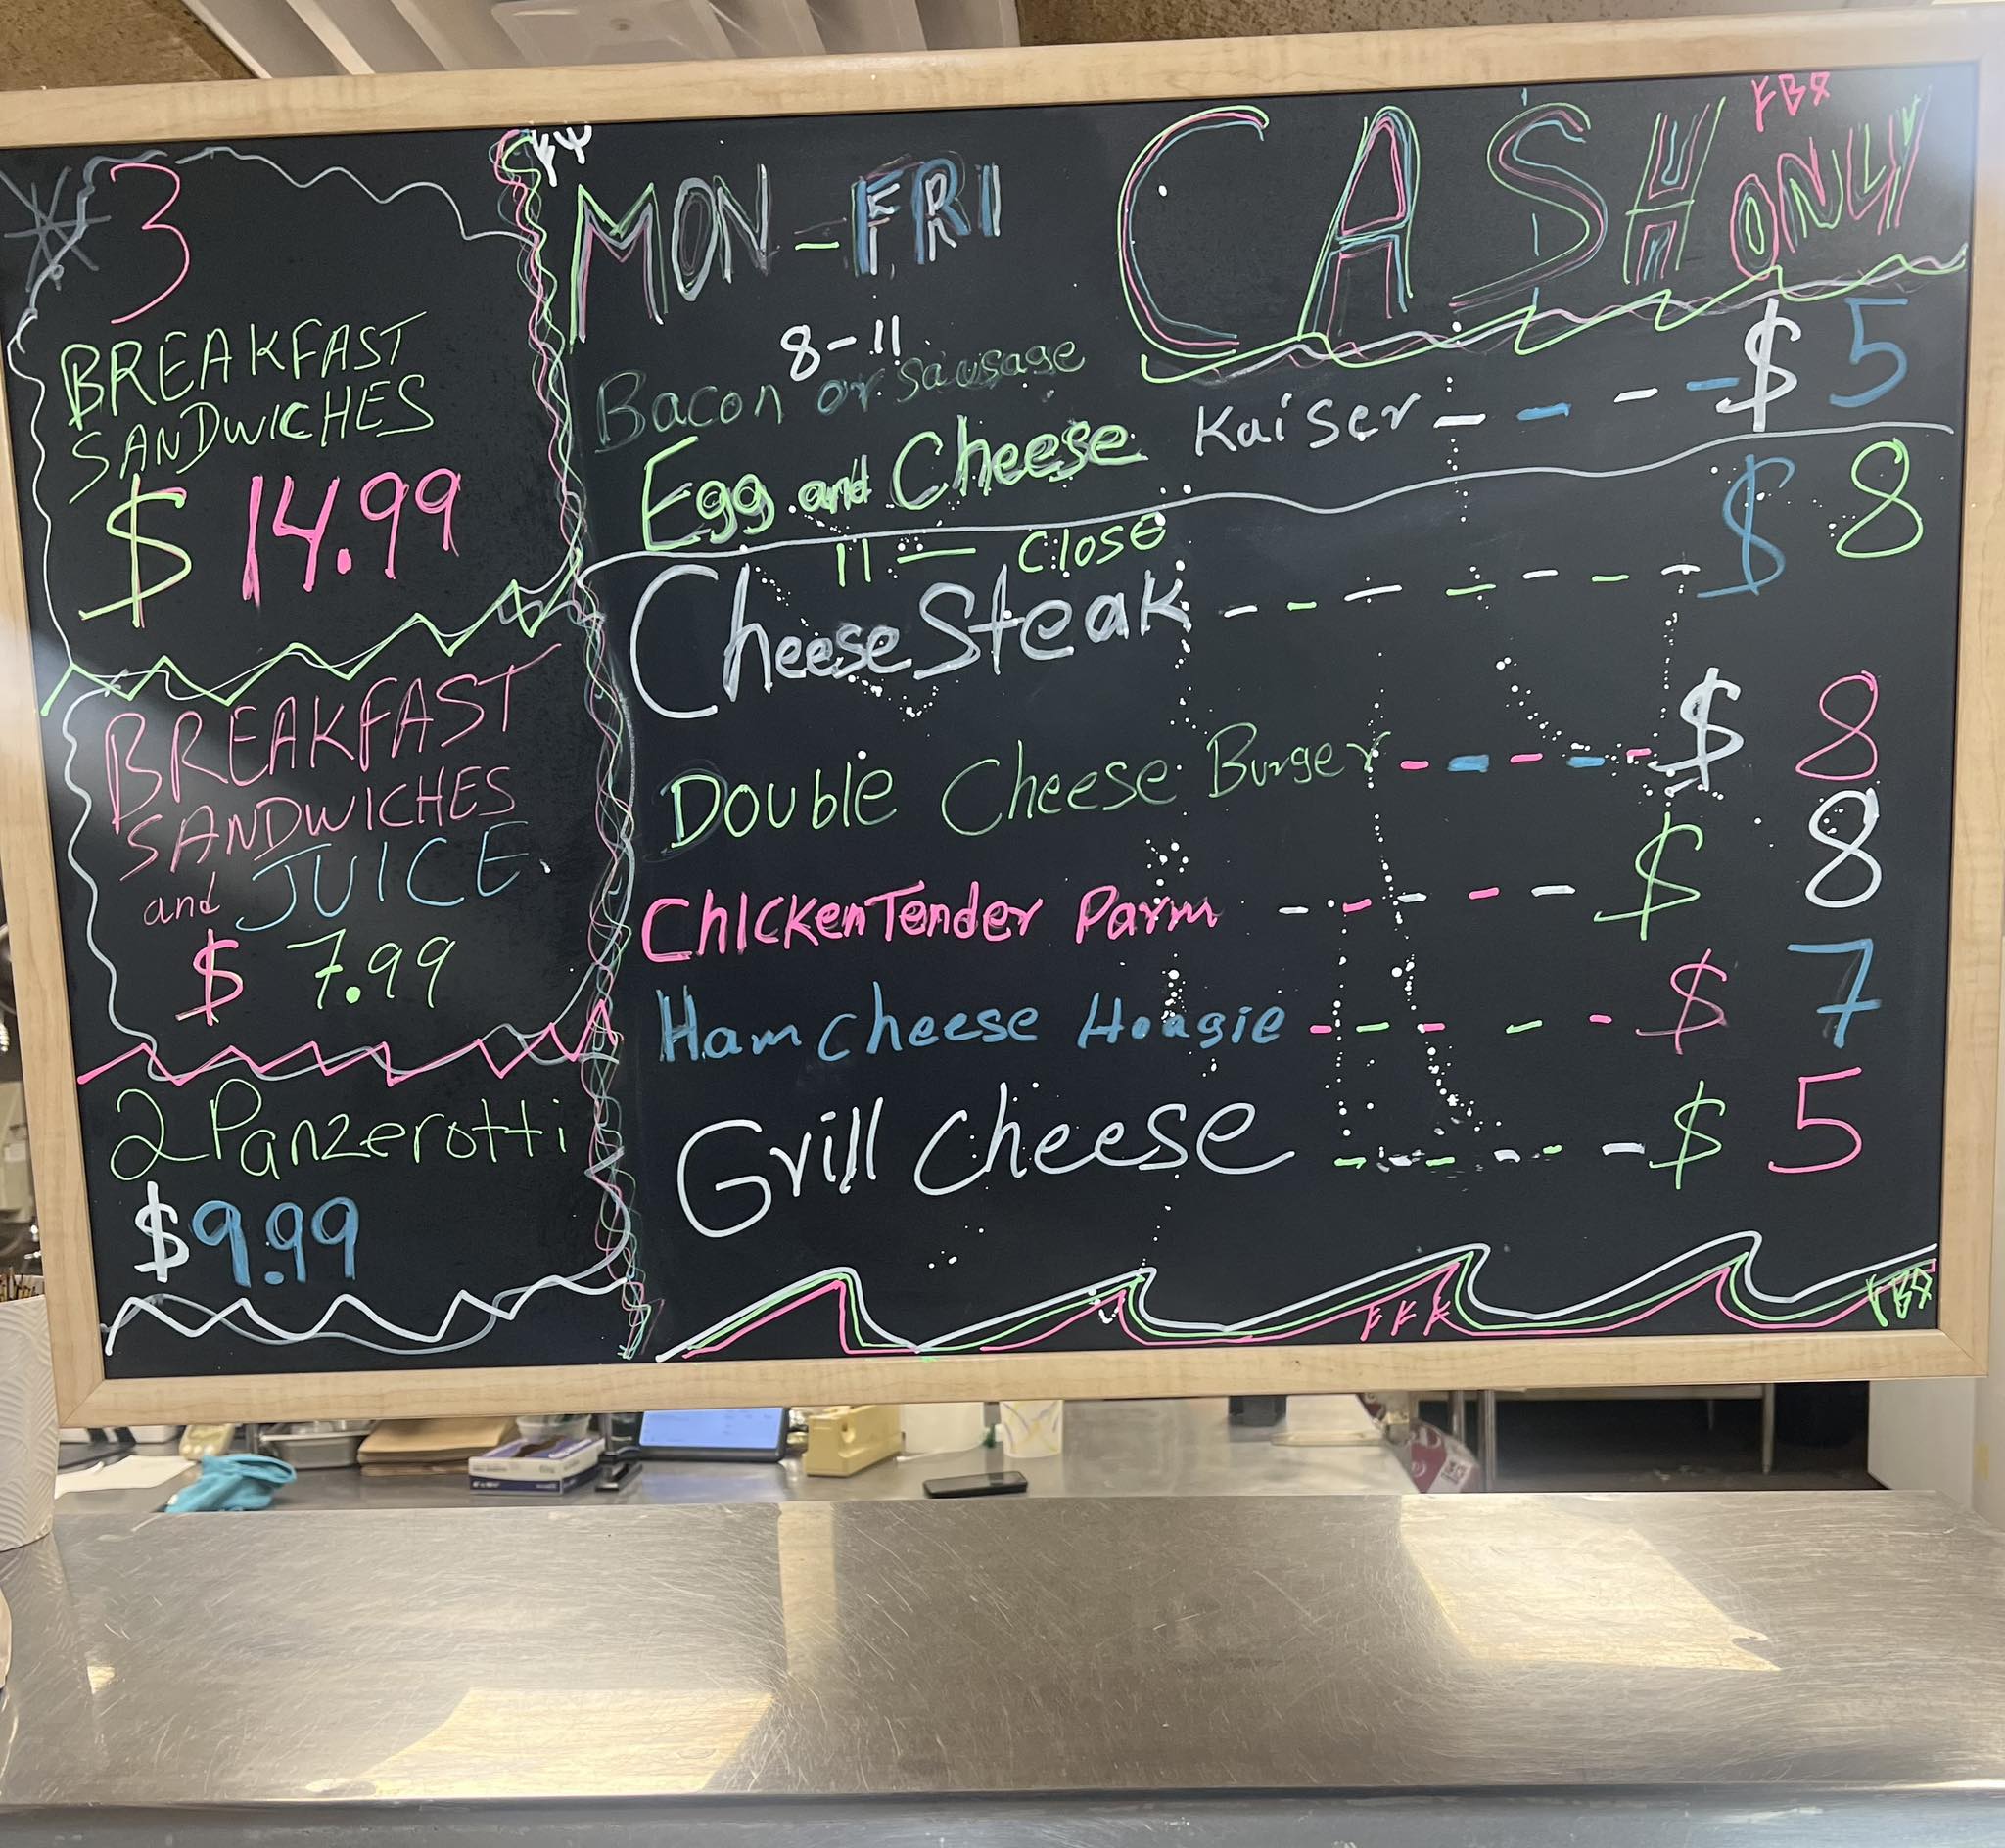 3
BREAKFAST
SANDWICHES
$ 14.99
BREAKFAST
SANDWICHES
and JUICE
$ 7.99
2 Panzerotti
$9.99
MON-FRI
CASH ONLY
8-11
Bacon or sausage
Egg and Cheese Kaiser - - - - $ 5
11 - Close
Cheese Steak - - - - - - - $ 8
Double Cheese Burger - - - - - $ 8
ChIcken Tender Parm - - - - - $ 8
Ham cheese Hoagie - - - - - $ 7
Grill cheese - - - - - - $ 5